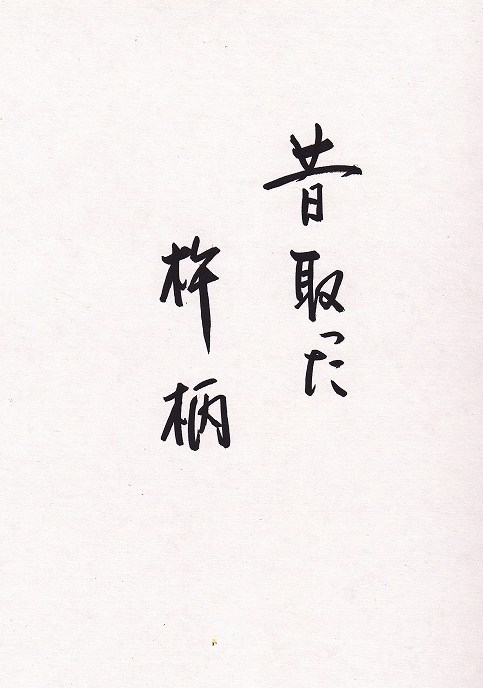 昔取った
杵柄